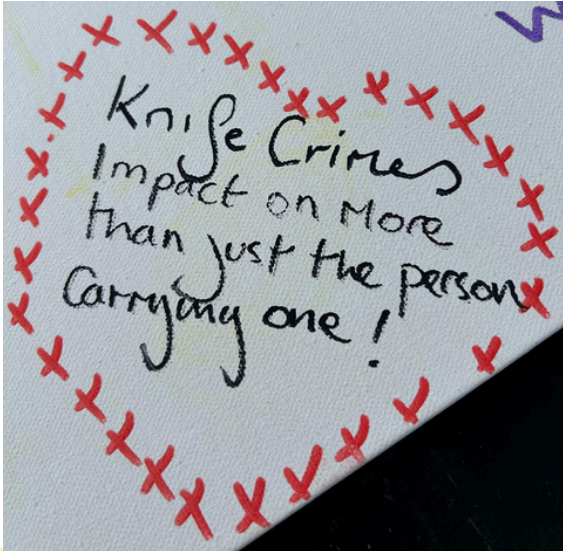 Knife Crimes
Impact on More
than just the person
Carrying one!